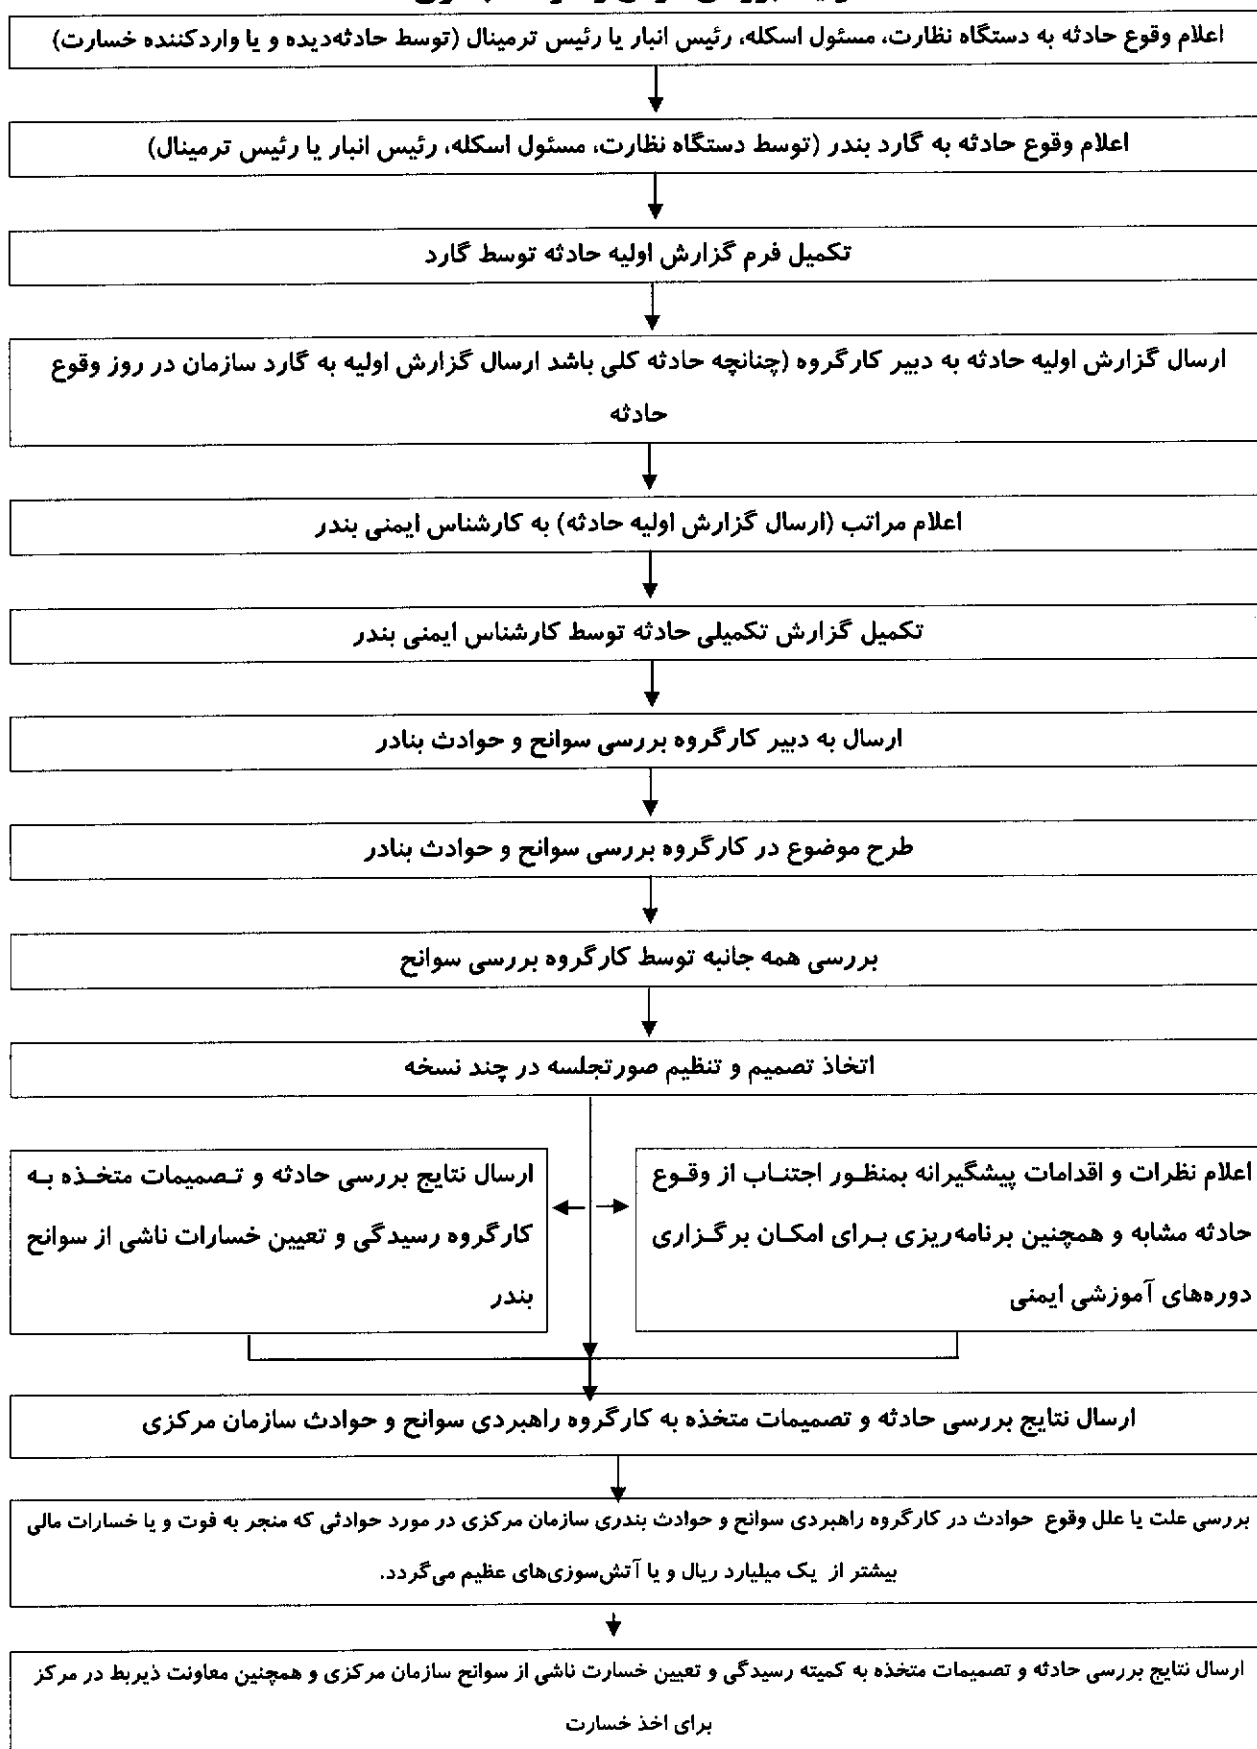 اعلام وقوع حادثه به دستگاه نظارت، مسئول اسکله، رئیس انبار یا رئیس ترمینال (توسط حادثه‌دیده و یا واردکننده خسارت)
اعلام وقوع حادثه به گارد بندر (توسط دستگاه نظارت، مسئول اسکله، رئیس انبار یا رئیس ترمینال)
تکمیل فرم گزارش اولیه حادثه توسط گارد
ارسال گزارش اولیه حادثه به دبیر کارگروه (چنانچه حادثه کلی باشد ارسال گزارش اولیه به گارد سازمان در روز وقوع
حادثه
اعلام مراتب (ارسال گزارش اولیه حادثه) به کارشناس ایمنی بندر
تکمیل گزارش تکمیلی حادثه توسط کارشناس ایمنی بندر
ارسال به دبیر کارگروه بررسی سوانح و حوادث بنادر
طرح موضوع در کارگروه بررسی سوانح و حوادث بنادر
بررسی همه جانبه توسط کارگروه بررسی سوانح
اتخاذ تصمیم و تنظیم صورتجلسه در چند نسخه
اعلام نظرات و اقدامات پیشگیرانه بمنظور اجتناب از وقوع
حادثه مشابه و همچنین برنامه‌ریزی برای امکان برگزاری
دوره‌های آموزشی ایمنی
ارسال نتایج بررسی حادثه و تصمیمات متخذه به
کارگروه رسیدگی و تعیین خسارات ناشی از سوانح
بندر
ارسال نتایج بررسی حادثه و تصمیمات متخذه به کارگروه راهبردی سوانح و حوادث سازمان مرکزی
بررسی علت یا علل وقوع حوادث در کارگروه راهبردی سوانح و حوادث بندری سازمان مرکزی در مورد حوادثی که منجر به فوت و یا خسارات مالی
بیشتر از یک میلیارد ریال و یا آتش‌سوزی‌های عظیم می‌گردد.
ارسال نتایج بررسی حادثه و تصمیمات متخذه به کمیته رسیدگی و تعیین خسارت ناشی از سوانح سازمان مرکزی و همچنین معاونت ذیربط در مرکز
برای اخذ خسارت